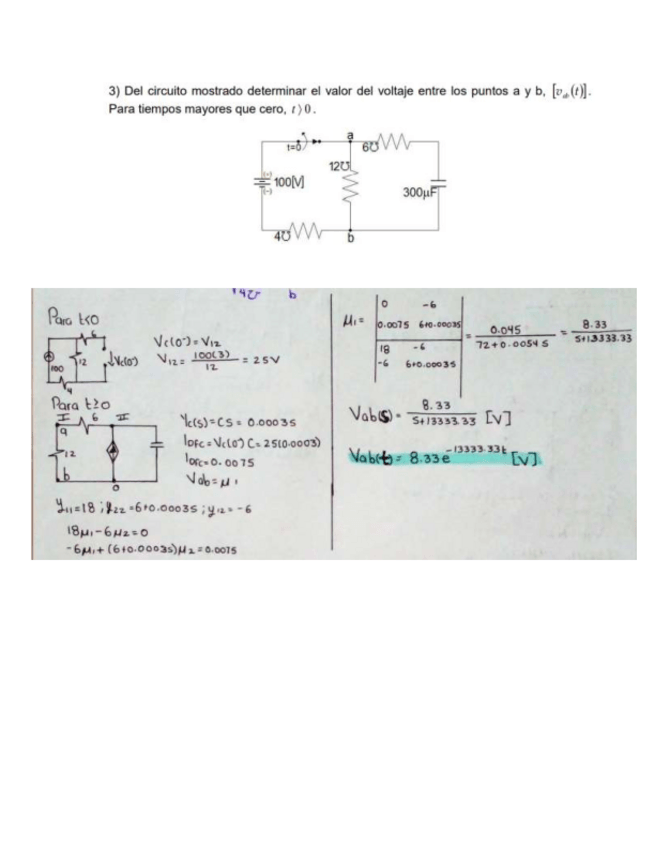 3) Del circuito mostrado determinar el valor del voltaje entre los puntos a y b, [v_ab(t)].
Para tiempos mayores que cero, t⟩0.
t=0
a
6℧
12℧
(+)
100[V]
(-)
300µF
4℧
b
b
Para t<0
6
12
100
4
Vc(0)
Vc(0⁻)=V12
V12= 100(3)/12 = 25V
Para t≥0
I 6 II
a
12
b
0
Yc(s)=CS = 0.0003S
IOFC=Vc(0⁻)C=25(0.0003)
IOFC=0.0075
Vab=µ1
y11=18 ; y22=6+0.0003S ; y12=-6
18µ1-6µ2=0
-6µ1+(6+0.0003s)µ2=0.0075
µ1=
0 -6
0.0075 6+0.0003S
18 -6
-6 6+0.0003S
= 0.045/72+0.0054S = 8.33/S+13333.33
Vab(s)= 8.33/S+13333.33 [V]
Vab(t)= 8.33e^-13333.33t [V]